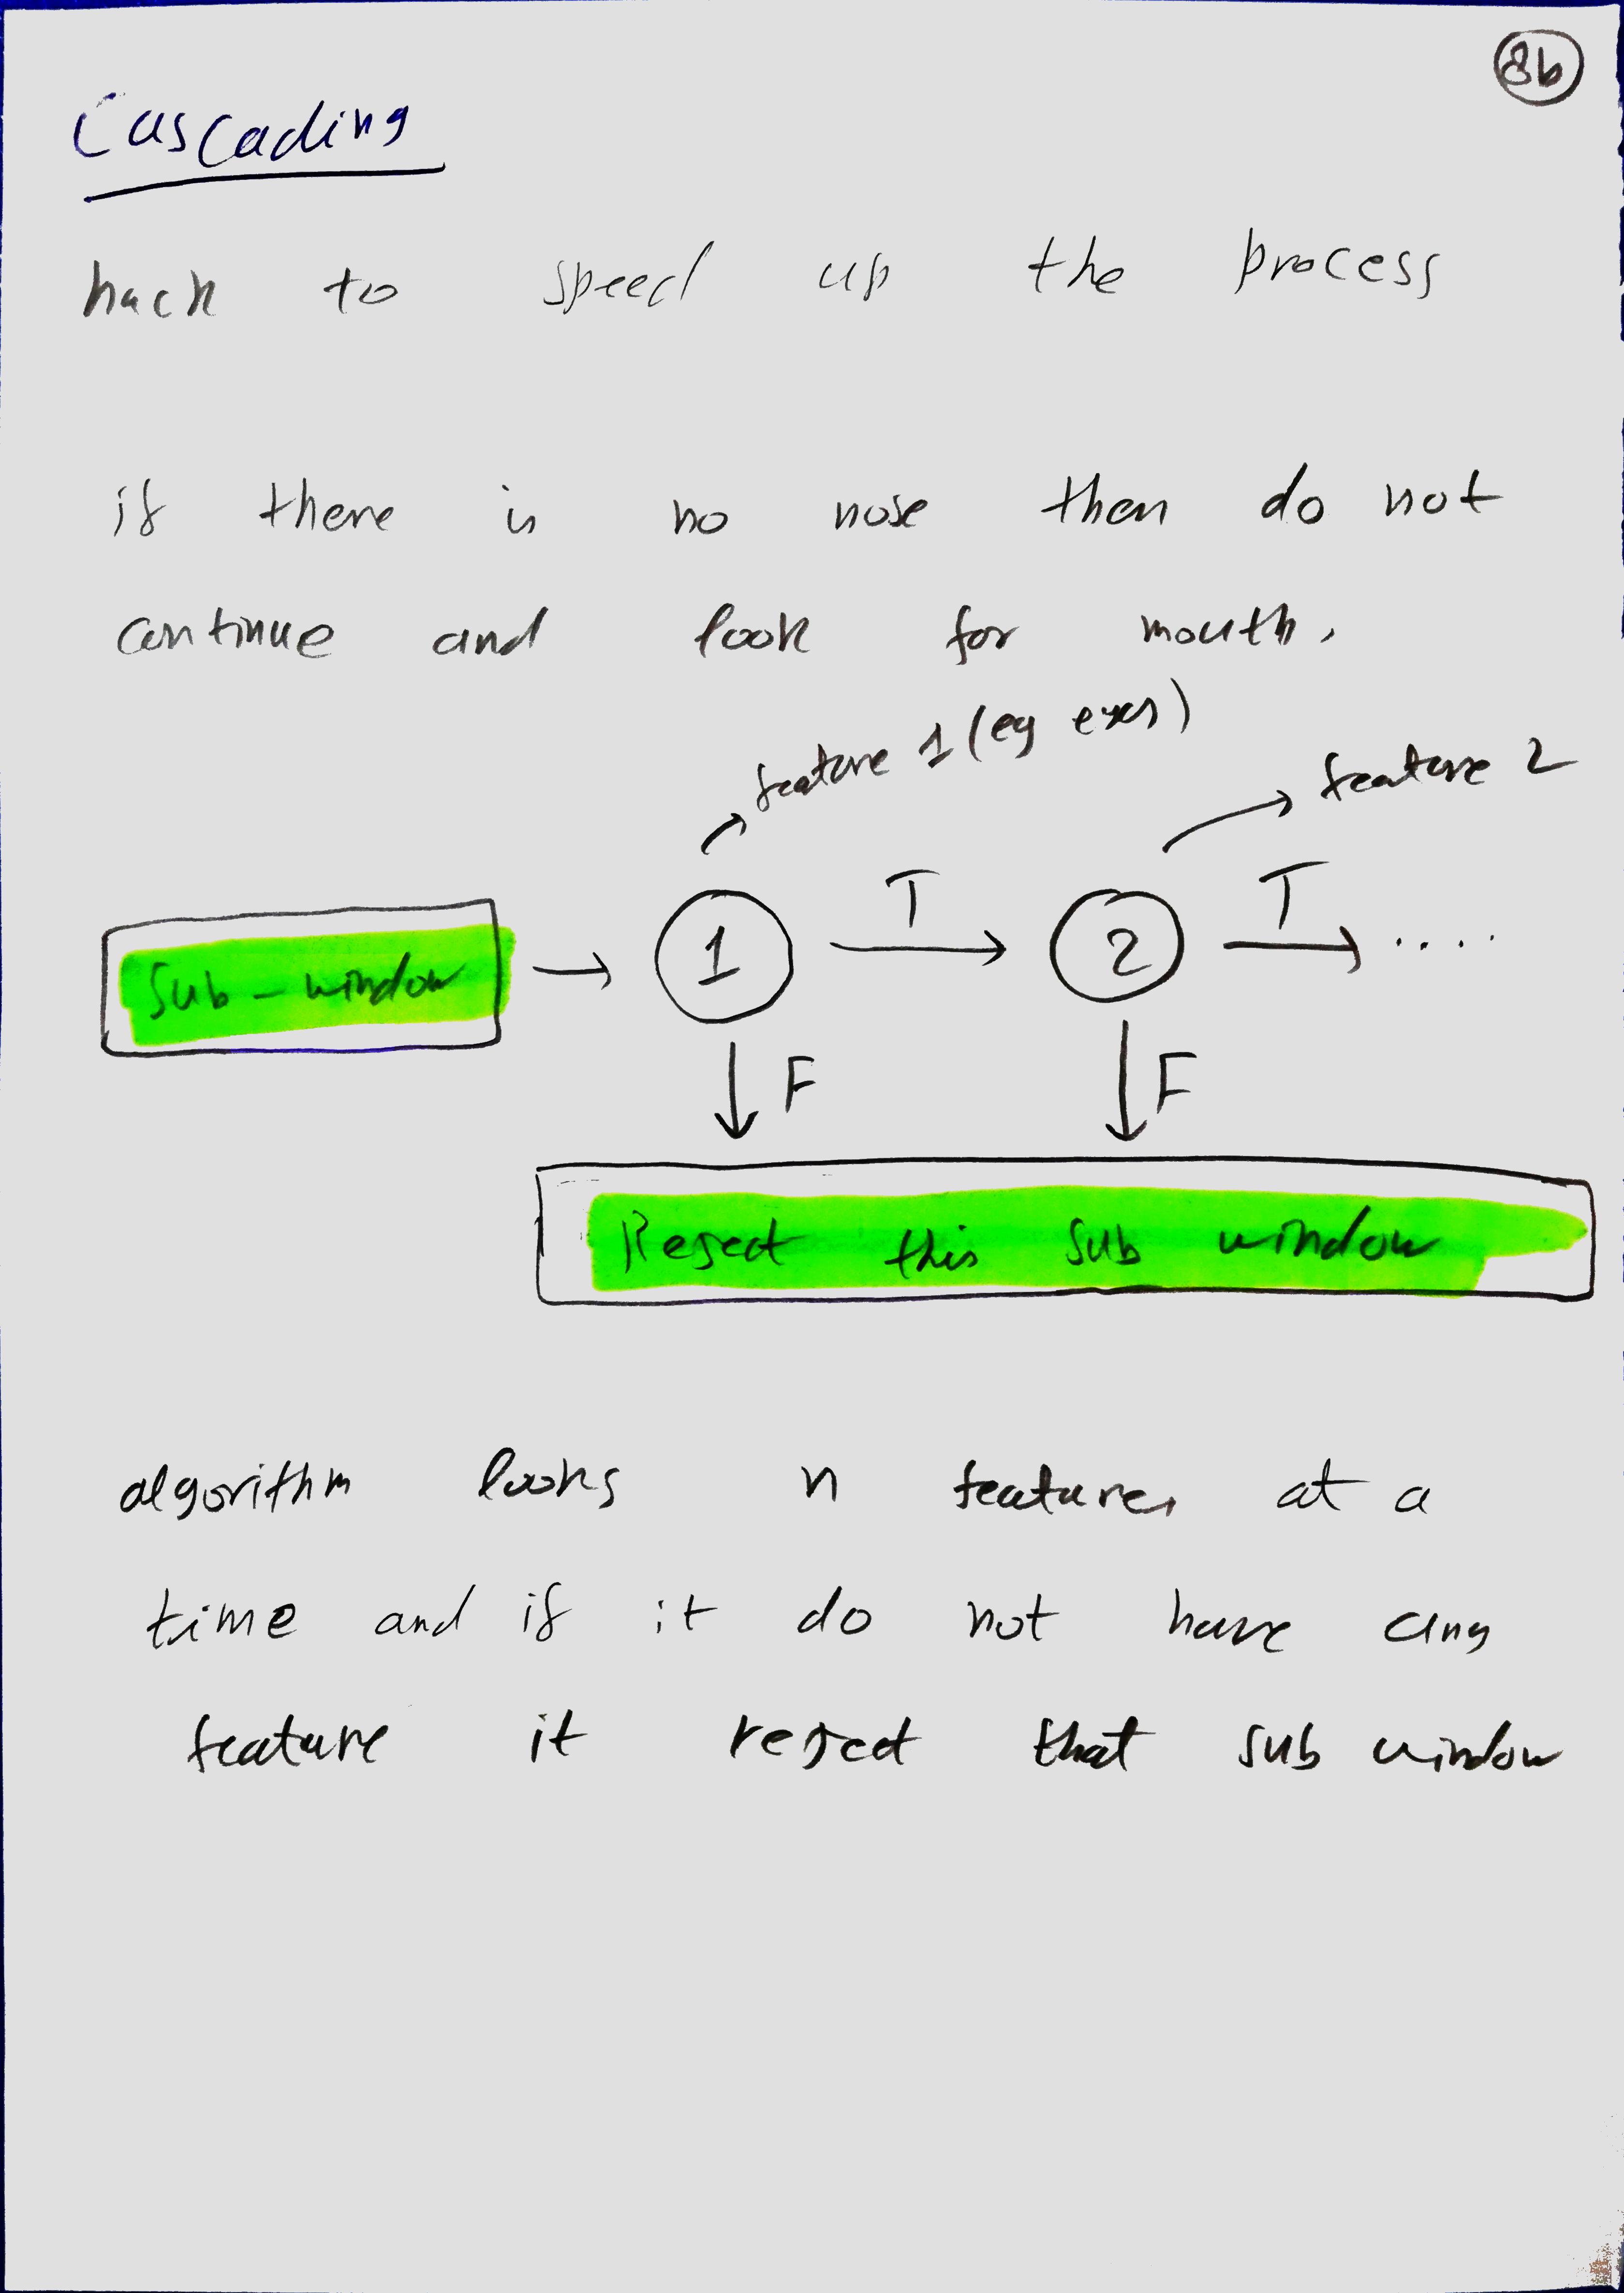 8b
Cascading
hack to speed up the process
if there is no nose then do not
continue and look for mouth.
feature 1 (eg eyes)
feature 2
T
T
Sub-window
1
2
....
F
F
Reject this sub window
algorithm looks n features at a
time and if it do not have any
feature it reject that sub window